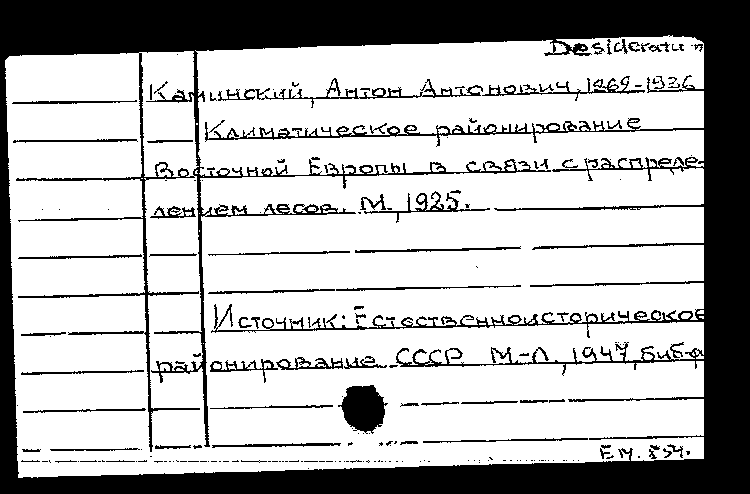 Desiderata
Каминский, Антон Антонович, 1862-1936
Климатическое районирование
Восточной Европы в связи с распреде-
лением лесов. М., 1925.
Источник: Естественноисторическое
районирование СССР М.-Л., 1947, Библ
Ем. 854.